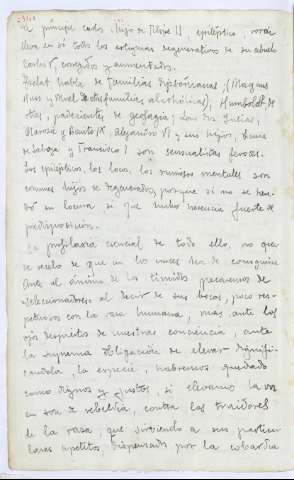 El príncipe Carlos, hijo de Felipe II, epiléptico,
lleva en sí todos los estigmas degenerativos de su abuelo
Carlos V, corregidos y aumentados.
habla de familias dipsomanas, (Magnus
Huss y Morel de otras familias alcohólicas), Humboldt de
otras, padecientes de geofagia; Los dos Lucias,
Marozie y Benito IX, Alejandro VI y sus hijos, Luisa
de Saboya y Francisco I son sensualistas feroces.
Los epilépticos, los locos, los ruinosos mentales son
comunes hijos de degenerados, porque si no se here-
dó su locura si que hubo herencia fuerte de
predisposición.
La profilaxia esencial de todo ello, no que-
da secreto de que en las uniones ha de conseguirse
Ante el ánimo de los tímidos pecaremos de
seleccionadores al decir de sus bocas, poco res-
petuosos con la raza humana, mas ante los
ojos despiertos de nuestras conciencias, ante
la suprema obligación de elevar dignifi-
cándola, la especie, habremos quedado
como dignos y justos, si elevamos la voz
en son de rebeldía, contra los traidores
de la raza, que sirviendo a sus particu-
lares apetitos, dispensados por la cobardía